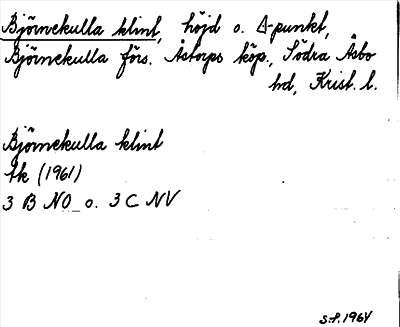 Björnekulla klint, höjd o. Δ-punkt,
Björnekulla förs. Åstorps köp., Södra Åsbo
hd, Krist. l.
Björnekulla klint
tk (1961)
3 B NO o. 3 C NV
S.P. 1964